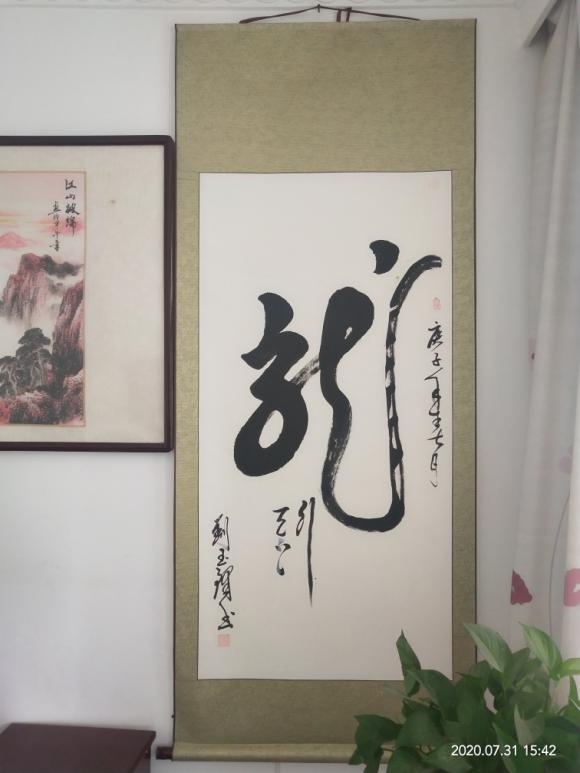 江山披锦
龍
庚子年七月
引
天
劉玉
书
2020.07.31 15:42